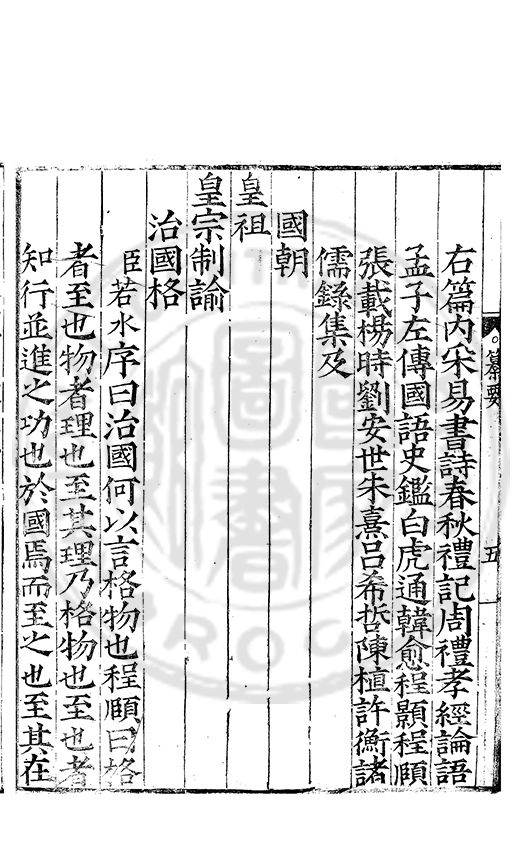 右篇內宋易書詩春秋禮記周禮孝經論語
孟子左傳國語史鑑白虎通韓愈程顥程頤
張載楊時劉安世朱熹呂希哲陳植許衡諸
儒錄集及
國朝
皇祖
皇宗制諭
治國格
臣若水序曰治國何以言格物也程頤曰格
者至也物者理也至其理乃格物也至也者
知行並進之功也於國焉而至之也至其在
纂要
五